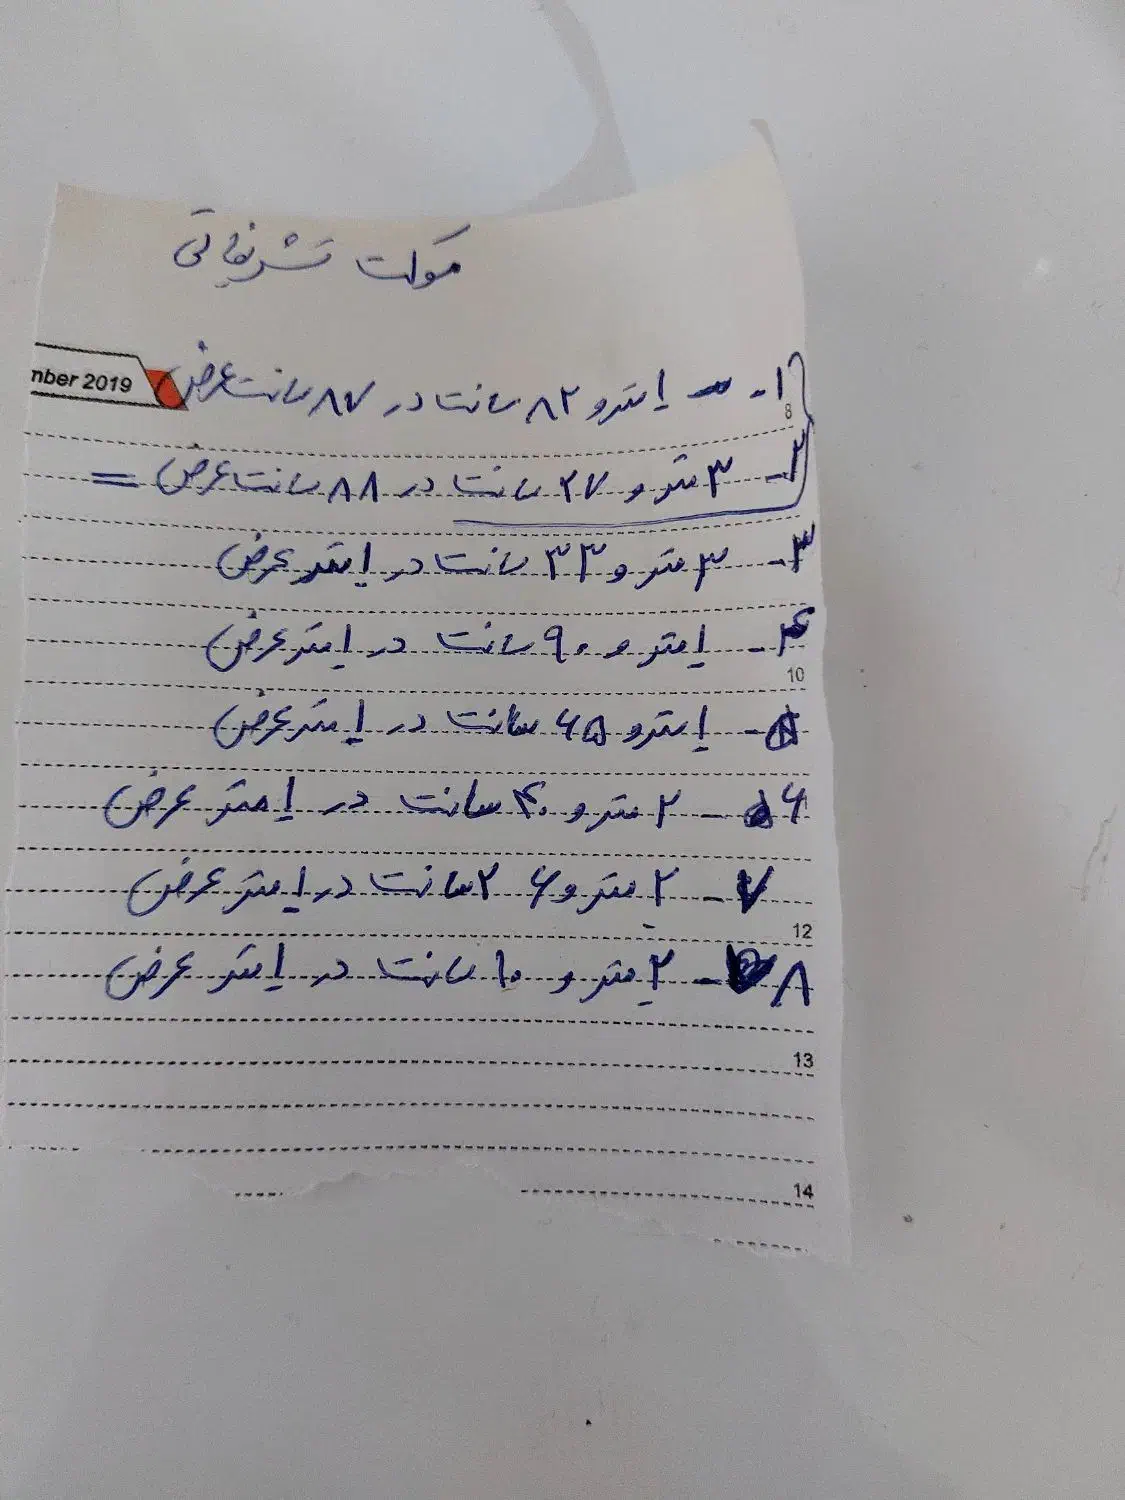 موکت تشریفاتی
mber 2019
۱- ۱متر و ۸۲ سانت در ۸۷ سانت عرض
8
۲- ۳ متر و ۲۷ سانت در ۸۸ سانت عرض =
۳- ۳ متر و ۳۳ سانت در ۱متر عرض
۴- ۱متر و ۹۰ سانت در ۱متر عرض
10
۵- ۱متر و ۶۵ سانت در ۱متر عرض
۶- ۲ متر و ۴۰ سانت در ۱متر عرض
۷- ۲ متر و ۲۶ سانت در ۱متر عرض
12
۸- ۲ متر و ۱۰ سانت در ۱متر عرض
13
14